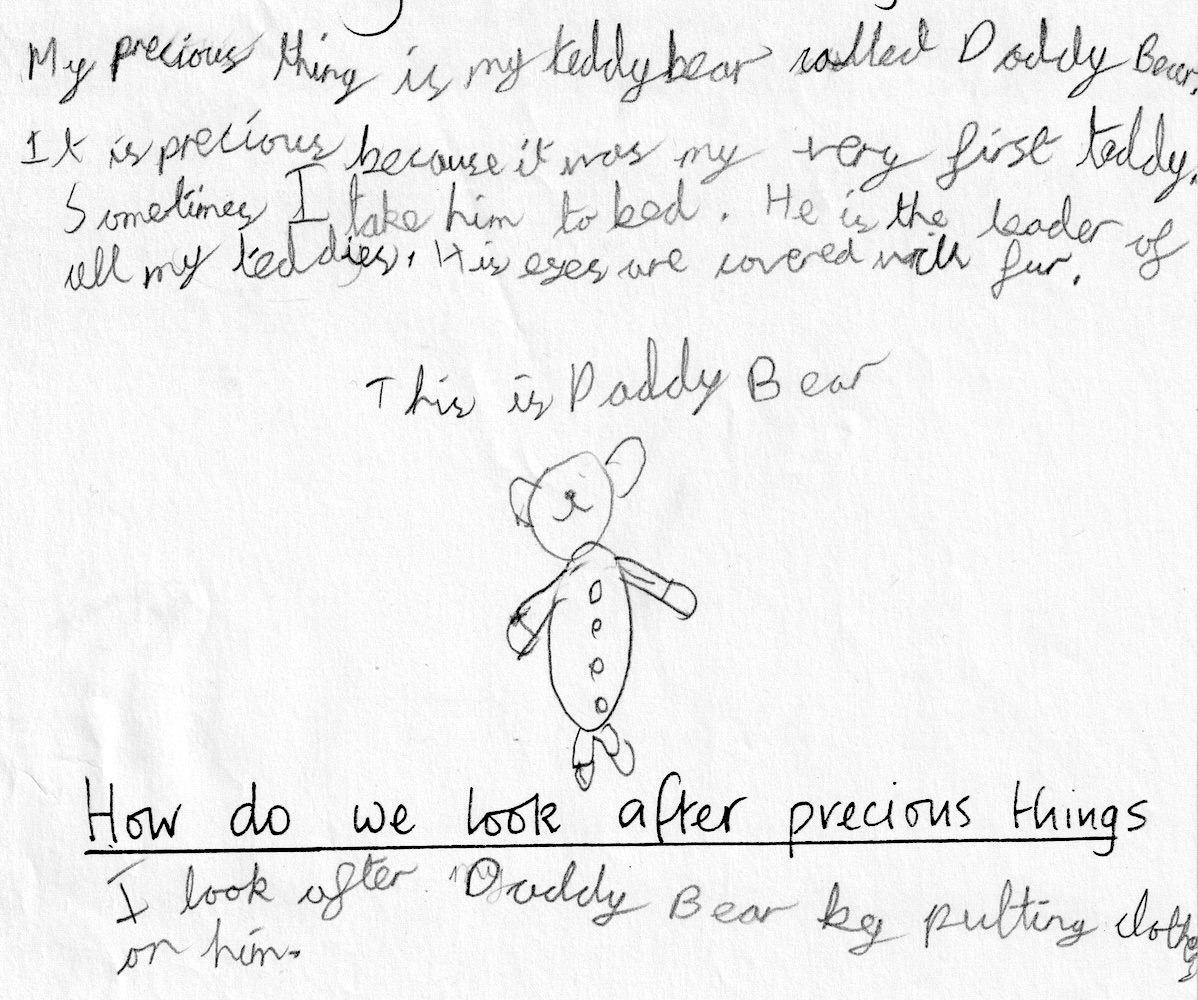 My precious thing is my teddy bear called Daddy Bear.
It is precious because it was my very first teddy.
Sometimes I take him to bed. He is the leader of
all my teddies. His eyes are covered with fur.
This is Daddy Bear
How do we look after precious things
I look after Daddy Bear by putting clothes
on him.